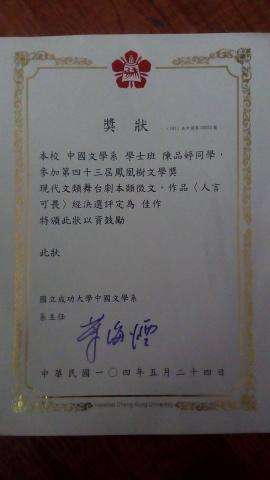 獎狀
本校 中國文學系 學士班 陳品婷同學，
參加第四十三屆鳳凰樹文學獎
現代文類舞台劇本類徵文，作品〈人言
可畏〉經決選評定為 佳作
特頒此狀以資鼓勵
此狀
國立成功大學中國文學系
系主任
中華民國一〇四年五月二十四日
National Cheng Kung University